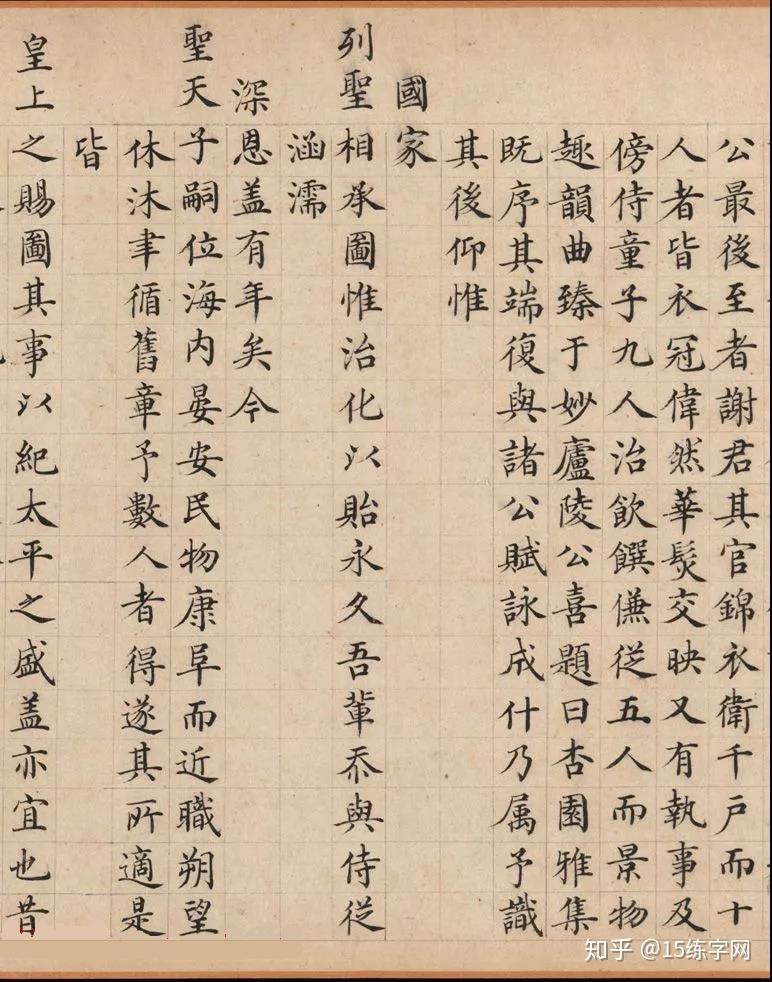 公最後至者謝君其官錦衣衛千戶而十
人者皆衣冠偉然華髮交映又有執事及
傍侍童子九人治飲饌傔從五人而景物
趣韻曲臻于妙廬陵公喜題曰杏園雅集
既序其端復與諸公賦詠成什乃属予識
其後仰惟
國家
列聖相承圖惟治化以貽永久吾輩忝與侍從
涵濡
深恩盖有年矣今
聖天子嗣位海内晏安民物康阜而近職朔望
休沐聿循舊章予數人者得遂其所適是
皆
皇上之賜圖其事以紀太平之盛盖亦宜也昔
知乎 @15练字网